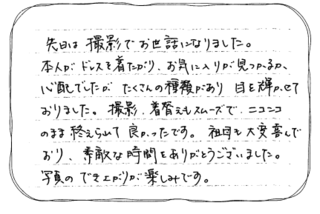 先日は撮影でお世話になりました。
本人がドレスを着たがり、お気に入りが見つかるか、
心配でしたが たくさんの種類があり 目を輝かせて
おりました。撮影、着替えもスムーズで、ニコニコ
のまま 終えられて 良かったです。祖母も大変喜んで
おり、素敵な時間をありがとうございました。
写真の でき上がりが 楽しみです。